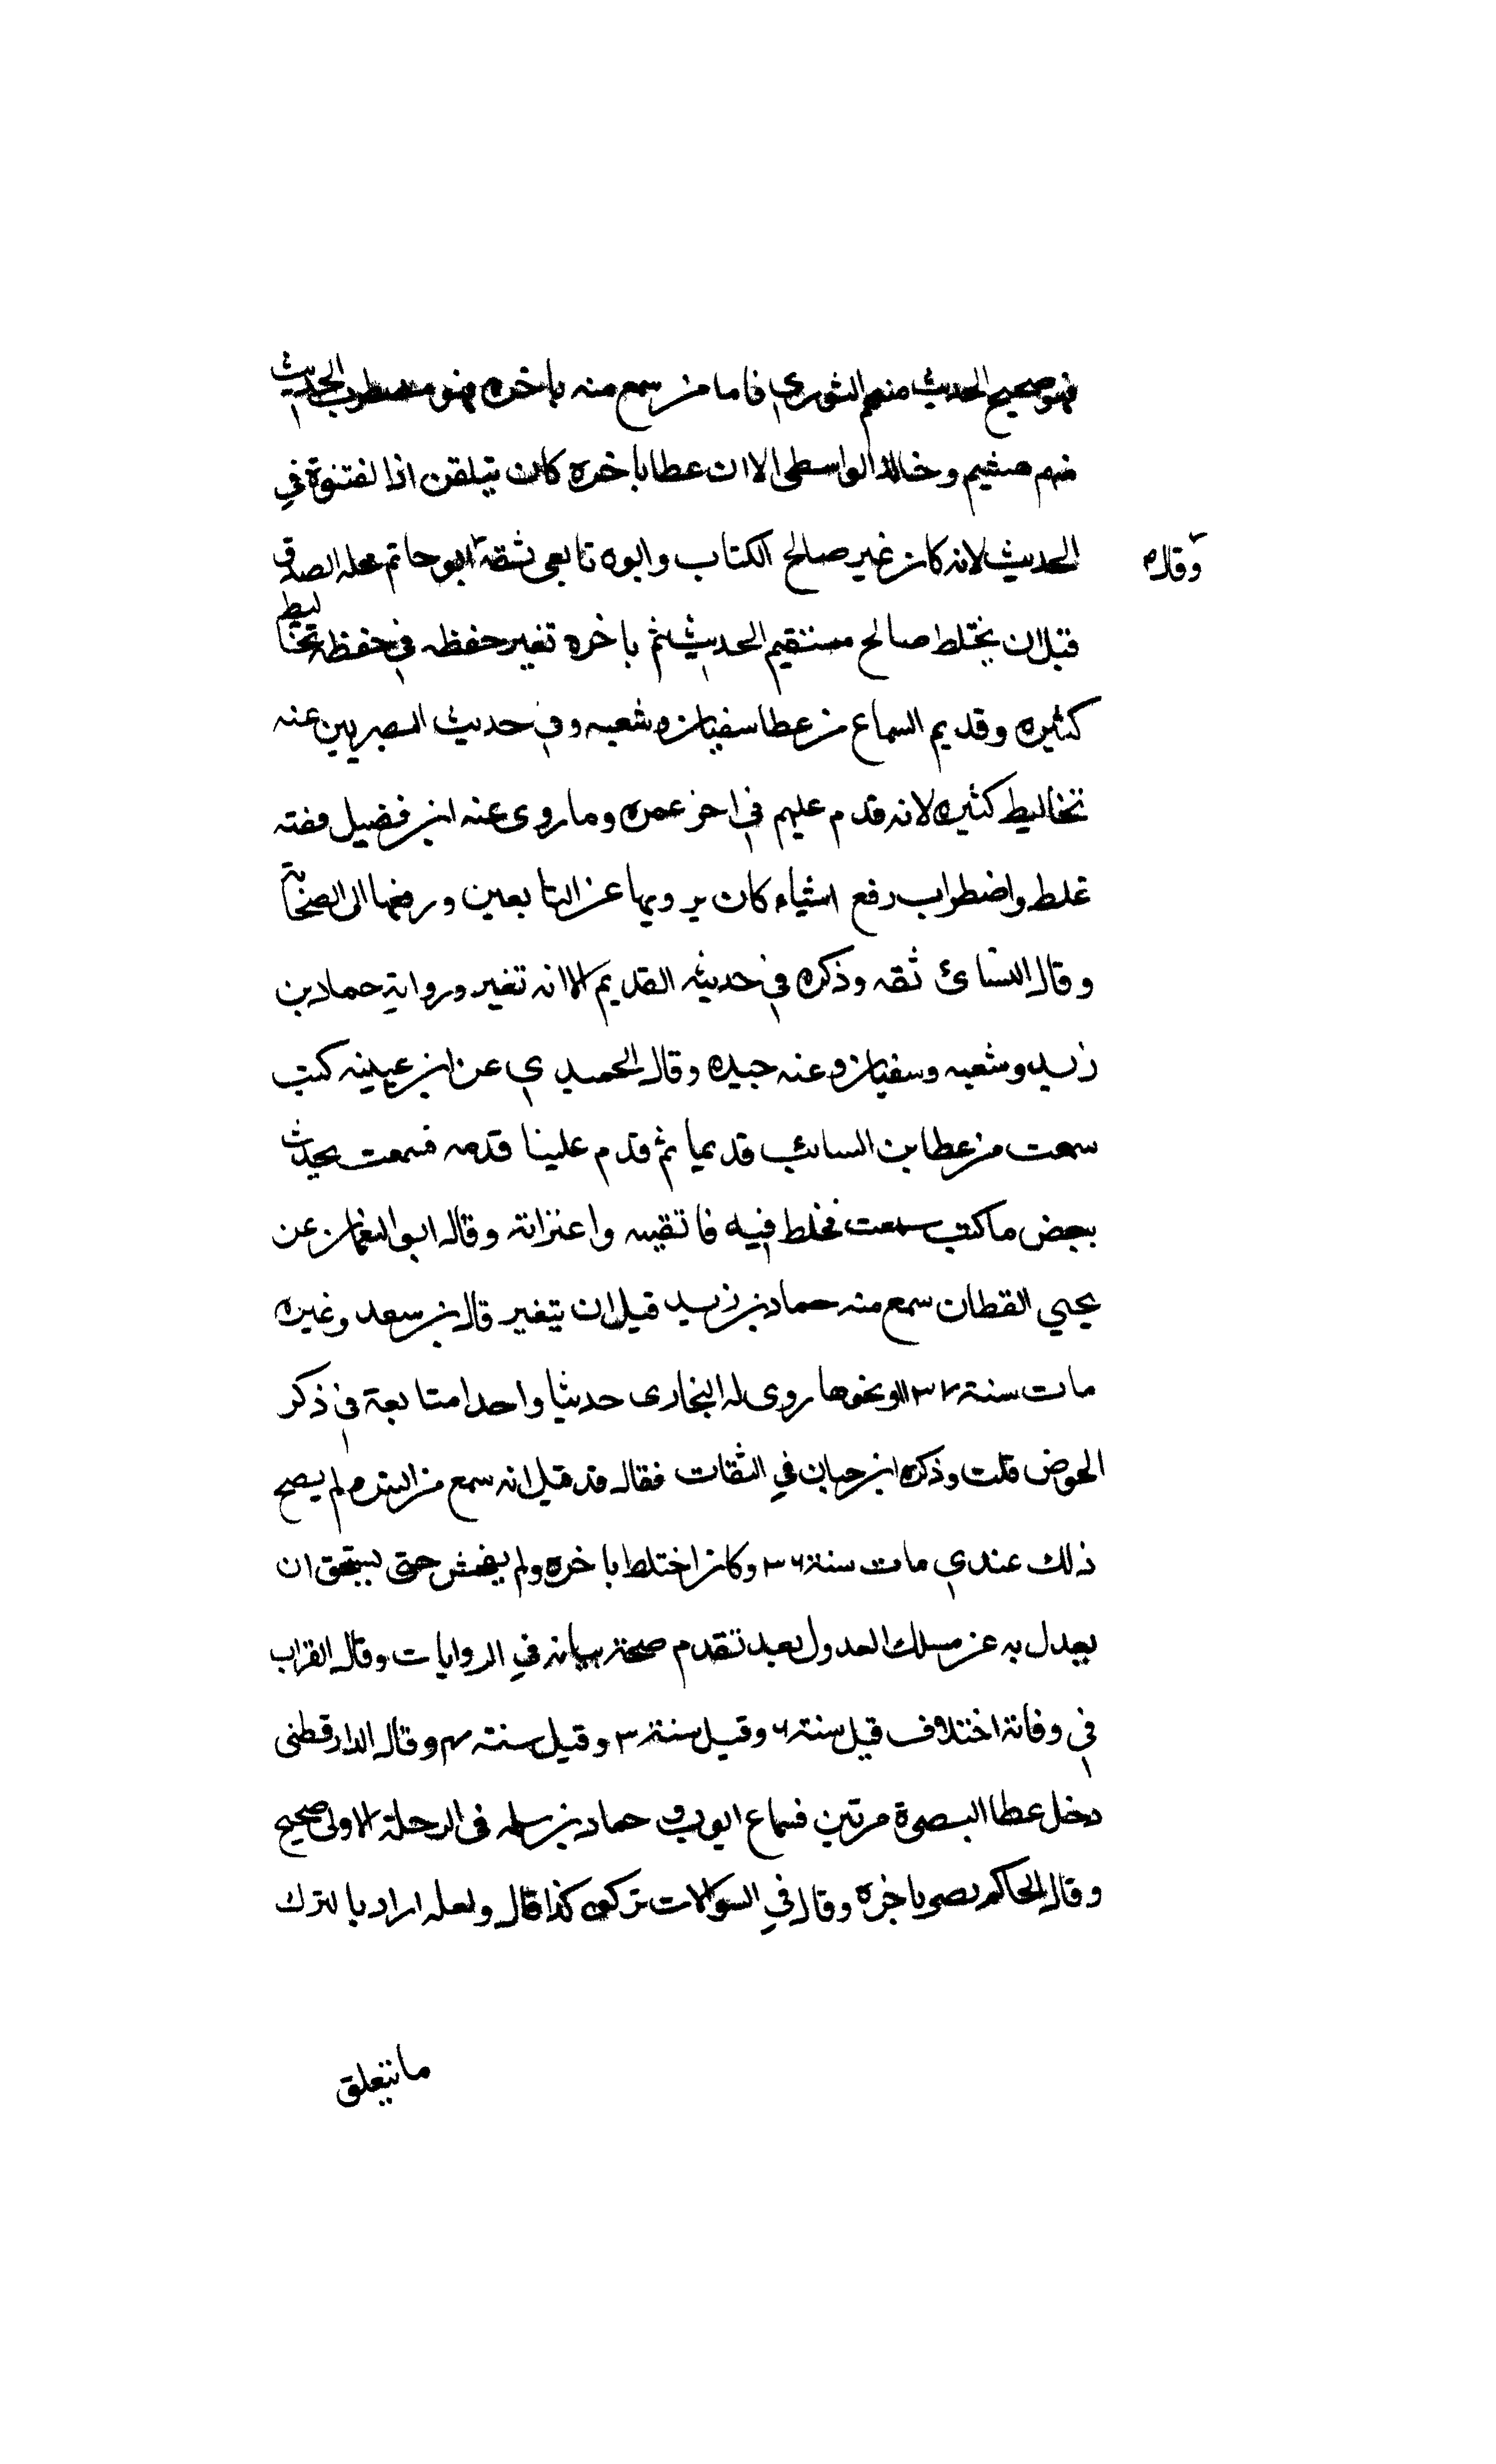 فهو صحيح الحديث منهم الثوري فاما من سمع منه باخره فهو مضطرب الحديث
منهم هشيم وخالد الواسطي الا ان عطا باخره كان يتلقن اذا لقنوه في
الحديث لانه كان غير صالح الكتاب وابوه تابعي ثقة ابو حاتم محله الصدق
وقال
قبل ان يختلط صالح مستقيم الحديث ثم باخره تغير حفظه في حفظه تخاليط
كثيره وقديم السماع من عطا سفيان وشعبه وفي حديث البصريين عنه
تخاليط كثيره لانه قدم عليهم في اخر عمره وما روى عنه ابن فضيل ففته
غلط واضطراب رفع اشياء كان يرويها عن التابعين ورفعها الى الصحابة
وقال النسائ ثقه وذكره في حديثه القديم الا انه تغير ورواية حماد بن
زيد وشعبه وسفيان وعنه جيده وقال الحميدي عن ابن عيينه كنت
سمعت من عطا بن السائب قديما ثم قدم علينا قدمه فسمعت يحدث
ببعض ما كنت سمعت فخلط فيه فاتقيته واعتزلته وقال ابو النعمان عن
يحيي القطان سمع منه حماد بن زيد قبل ان يتغير قال بن سعد وغيره
مات سنة ١٣٧ ونحوها روى له البخارى حديثا واحدا متابعة في ذكر
الحوض قلت وذكره ابن حبان في الثقات فقال قد قيل انه سمع من انس ولم يصح
ذلك عندي مات سنة ٣٦ وكان اختلط باخره ولم يفحش حتى يستحق ان
يعدل به عن مسلك العدول بعد تقدم صحة بيانه في الروايات وقال القراب
في وفاته اختلاف قيل سنة ٦ وقيل سنة ٣ وقيل سنة ٤ وقال الدارقطنى
دخل عطا البصرة مرتين فسماع ايوب وحماد بن سلمه فى الرحلة الاولى صحيح
وقال الحاكم باخره وقال في السوالات تركوه كذا قال ولعله اراد بالترك
ما يتعلق